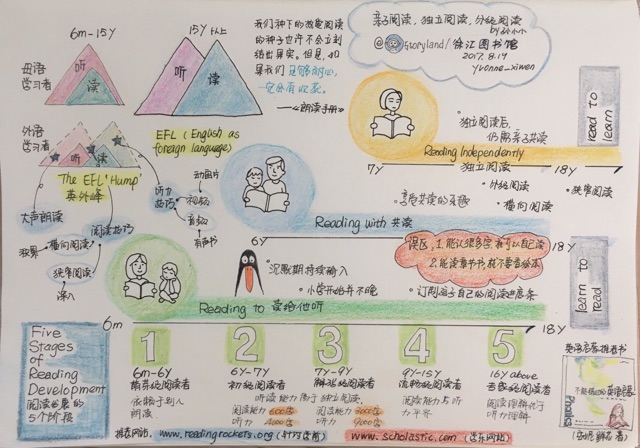 6m-15Y
15Y以上
母语
学习者
听
读
听
读
我们种下的教电阅读
的种子也许不会立刻
结出果实。但是,如
果我们足够耐心,
一定会有收获。
——《朗读手册》
亲子阅读, 独立阅读, 分级阅读
by
@ Storyland/徐汇图书馆
2017.8.19
Yvonne_xiwen
外语
学习者
听
读
EFL (English as
foreign language)
The EFL'Hump'
英外峰
大声朗读
阅读技巧
横向阅读
狭窄阅读
深入
听力
技巧
动图片
视频
音频
有声书
独立阅读后,
仍需亲子共读
Reading Independently
独立阅读
7Y
18Y
read to
learn
分级阅读
横向阅读
狭窄阅读
享受共读的乐趣
Reading with 共读
6Y
18Y
误区, 1.能认很多字就可以自己读
2.能读章节书,就不要者绘本
沉默期持续输入
小袋开始并不晚
订制孩子自己的阅读进度条
Reading to 读给他听
6m
18Y
learn to
read
Five
Stages
of
Reading
Development
阅读发展的
5个阶段
1
6m-6Y
萌芽级阅读者
依赖于别人
朗读.
2
6Y-7Y
初级阅读者
阅读能力 600字
听力 4000字
3
7Y-9Y
解码级阅读者
听读能力高于独立阅读.
阅读能力 3000字
听力 9000字
4
9Y-15Y
流畅级阅读者
阅读能力与听
力平齐
5
16Y above
专家级阅读者
阅读理解优于
听力理解
英语启蒙推荐书
不能错过的英语启蒙
Phonics
推荐网站. www.readingrockets.org
www.scholastic.com